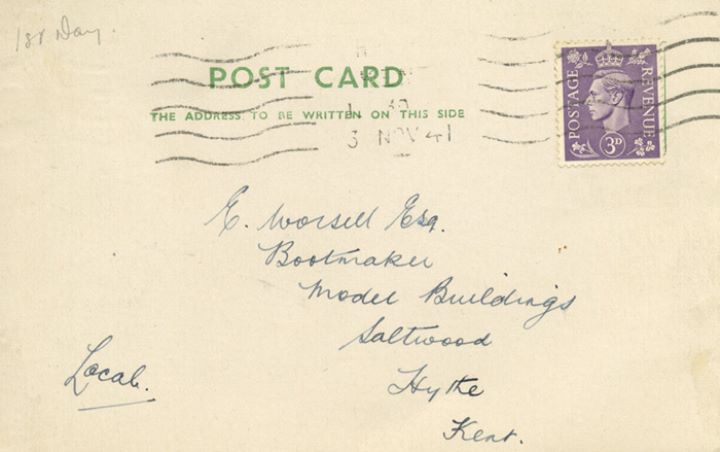 1st Day.
POST CARD
THE ADDRESS TO BE WRITTEN ON THIS SIDE
3 NOV 41
POSTAGE
REVENUE
3D
E. Worsell Esq.
Bootmaker
Model Buildings
Saltwood
Hythe
Kent.
Local.